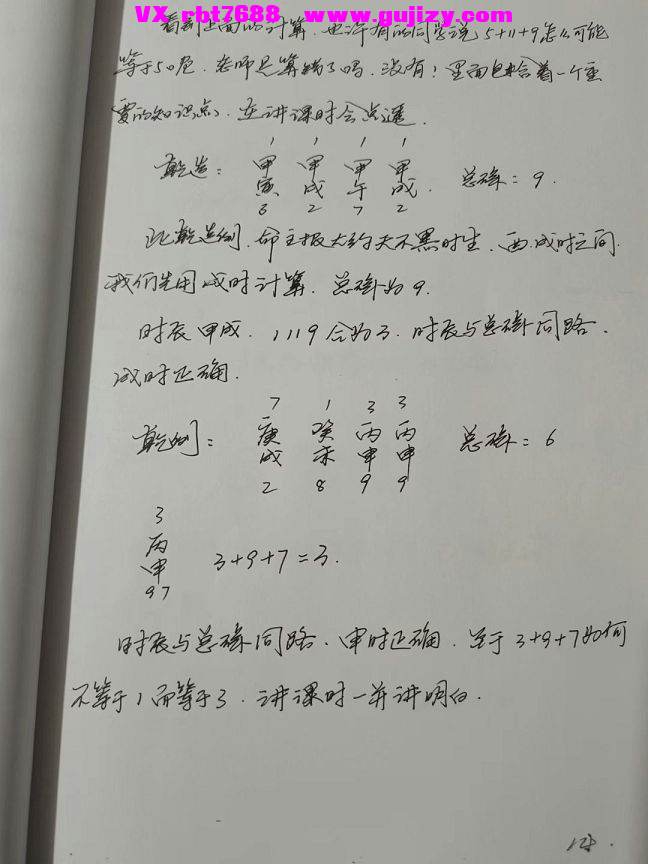 VX_rbt7688 www.gujizy.com
看到上面的计算.也许有的同学说 5+11+9怎么可能
等于50呢.老师是算错了吗.没有!里面包含着一个重
要的知识点、在讲课时会点透.
1 1 1 1
乾造: 甲 甲 甲 甲
寅 戌 午 戌. 总磁: 9.
8 2 7 2
此乾造例.命主报大约天不黑时生.酉.戌时之间.
我们先用戌时计算.总磁为9.
时辰甲戌.1119合为3.时辰与总磁同路.
戌时正确.
7 1 3 3
乾例: 庚 癸 丙 丙
戌 未 申 申 总磁: 6
2 8 9 9
3
丙
申 3+9+7=3.
9 7
时辰与总磁同路.申时正确.至于3+9+7如何
不等于1而等于3.讲课时一并讲明白.